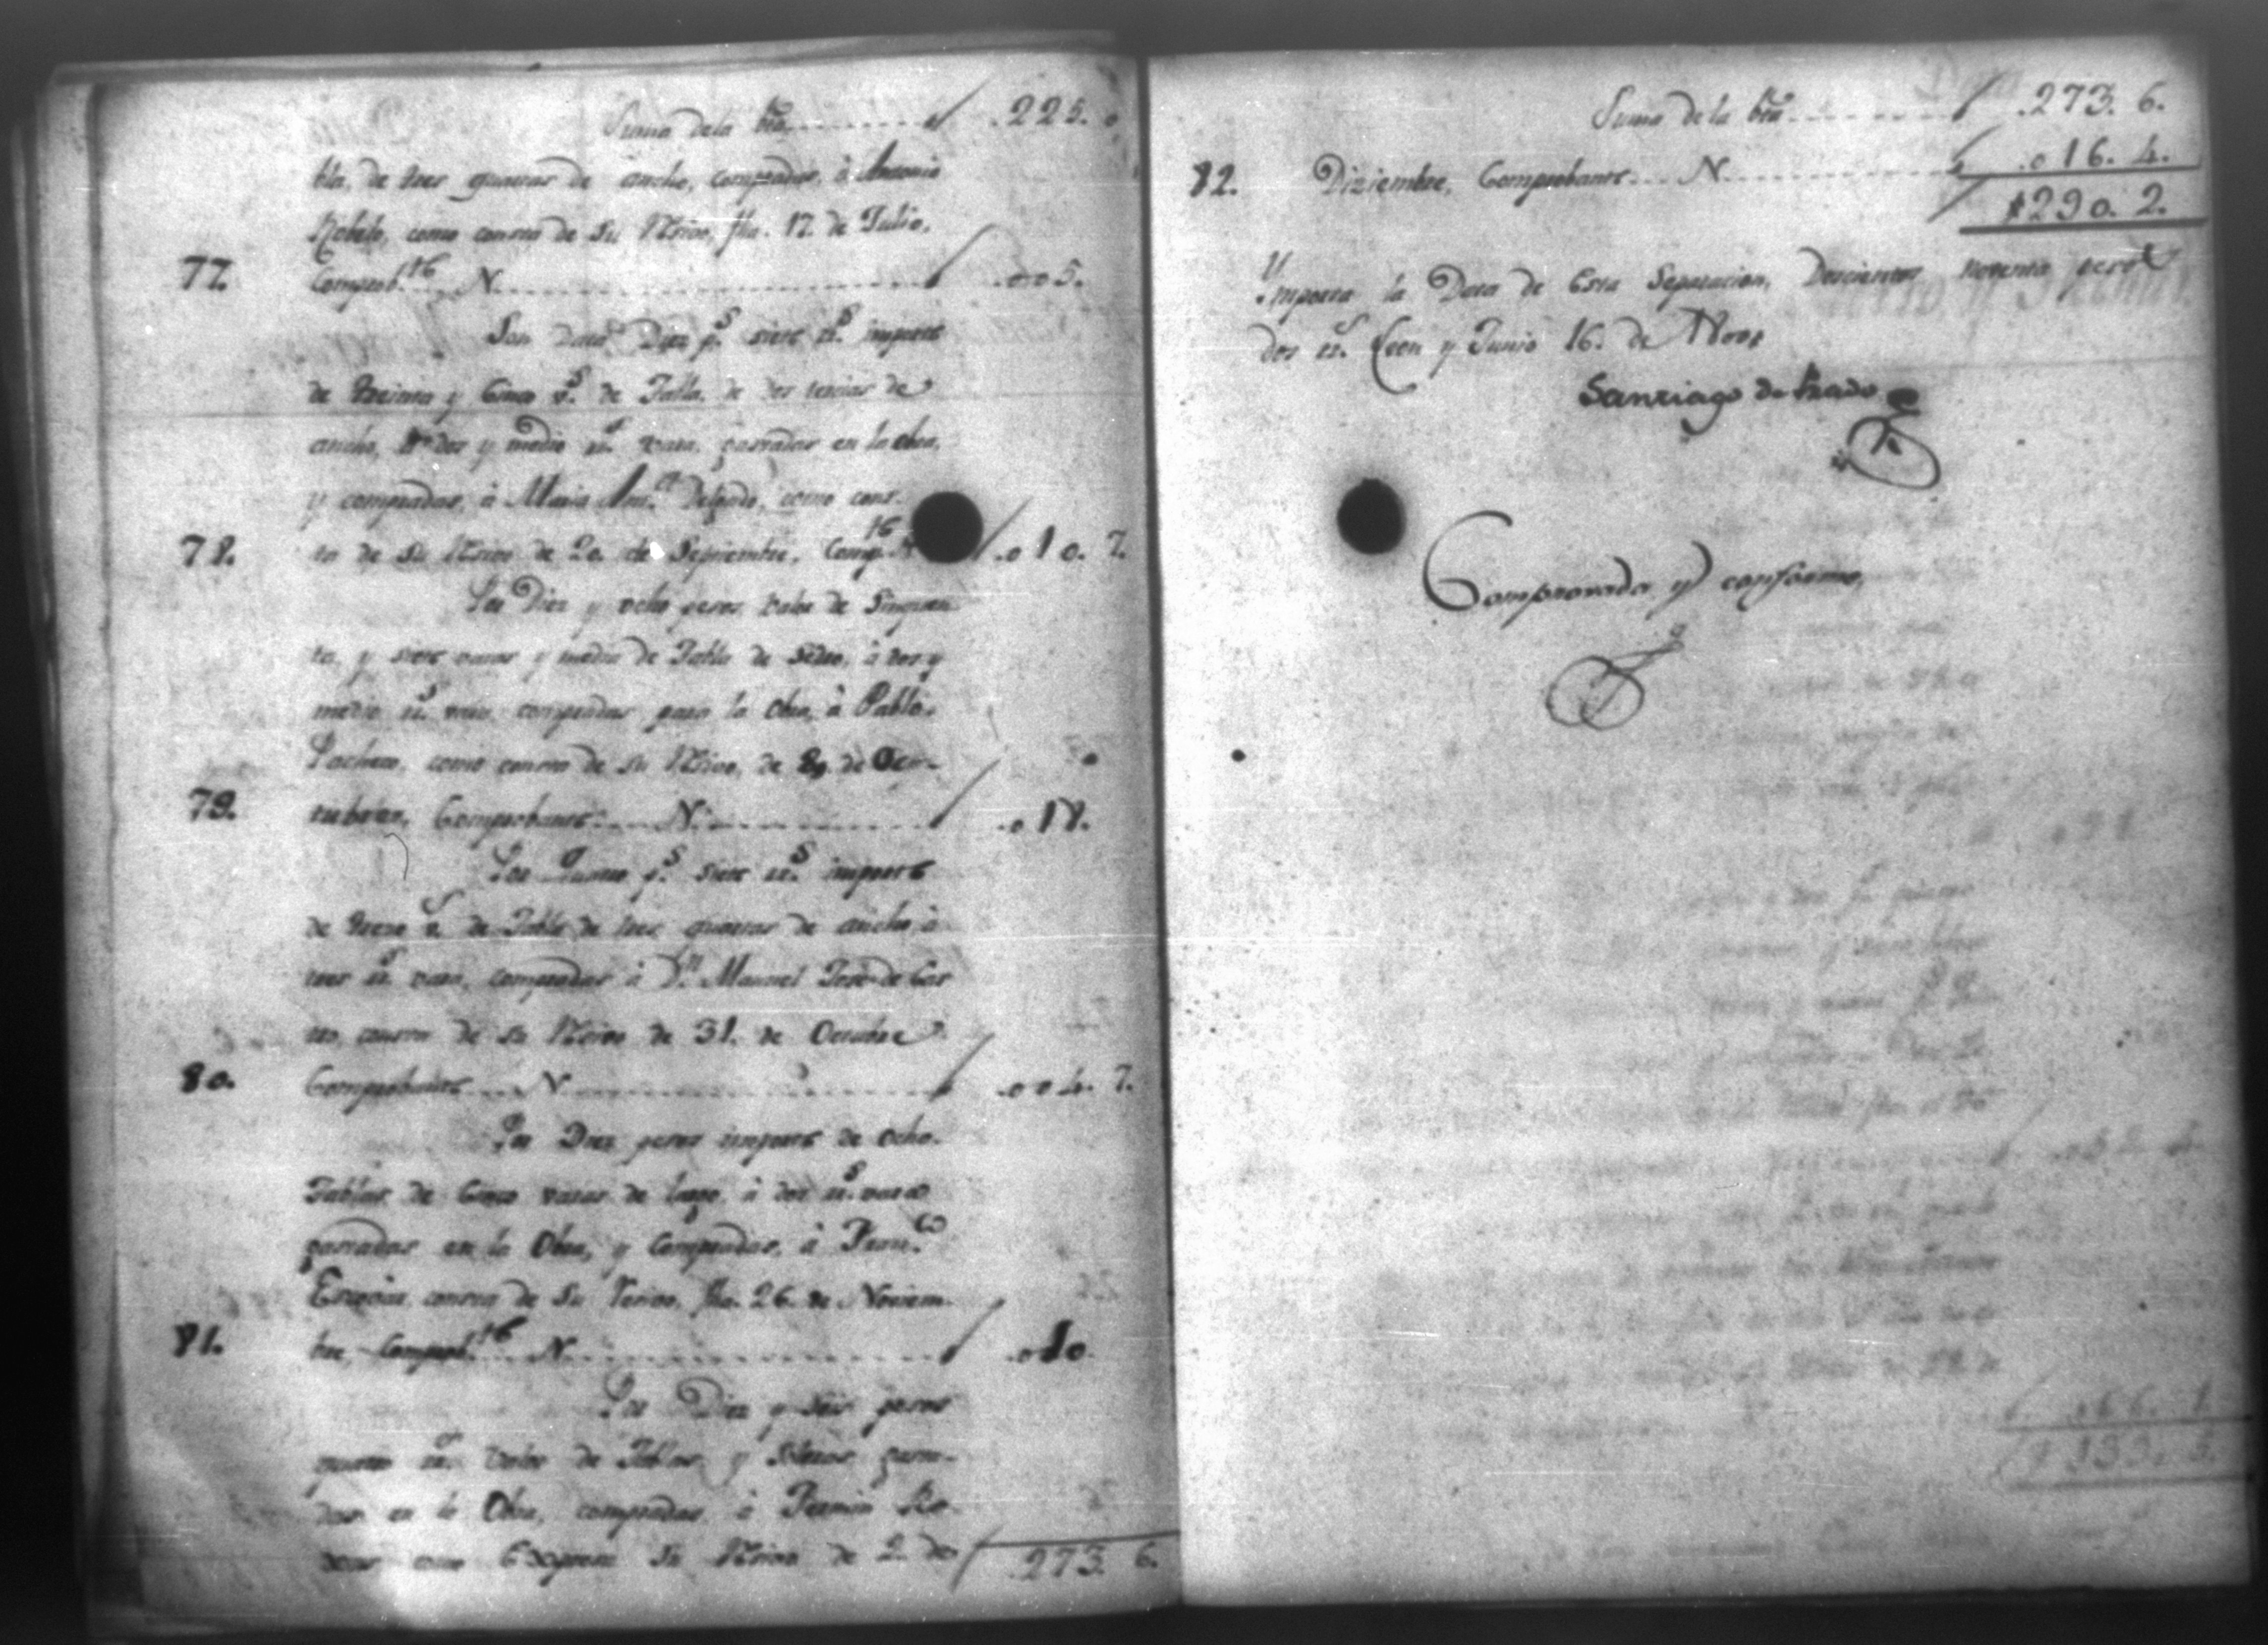 Suma de la bta 225. 0
bla, de tres quartas de ancho, compradas, à Antonio
como consta de su Rēcivo, fha. 17. de Julio,
77. Comprob.te N. ..05.
Son Diez p.s siete rr.s importe
de treinta y Cinco v.s de Tabla, de dos tercias de
ancho, à dos y medio rr.s vara, gastadas en la obra,
y compradas, à Maria Delgado, como cons-
78. ta de su Rēcivo de 20. de Septiembre, Comp.te N .010. 7.
Por Diez y ocho pesos valor de Sinquen
ta, y siete varas y media de Tabla de Sedro, à dos y
medio rr.s vara, compradas para la Obra, à Pablo
Pacheco, como consta de su Rēcivo, de de Oc-
79. tubre, Comprobante N. .018.
Por Quatro p.s siete rr.s importe
de treze v.s de Tabla de tres quartas de ancho, à
tres rr.s vara, compradas à D.n Manuel José de Cas
tro, consta de su Rēcivo de 31. de Octubre
80. Comprobante N .004. 7.
Por Diez pesos importe de ocho
Tablas de Cinco varas de largo, à dos rr.s vara
gastadas en la Obra, y Compradas, à Fran.co
consta de Su Recivo, fha. 26. de Noviem-
81. bre, Comprob.te N .010.
Por Diez y Seis pesos
quatro rr.s valor de Tablas, y gasta-
das en la Obra, compradas, à Fermin
como Expresa Su Rēcivo de 2. de 273. 6.
Suma de la bta 273. 6.
82. Diziembre, Comprobante N .016. 4.
290. 2.
Ymporta la Data de Esta Separacion, Doscientos noventa pesos
dos rr.s Leon y Junio 16. de
Santiago de Prado
Comprovada y conforme,